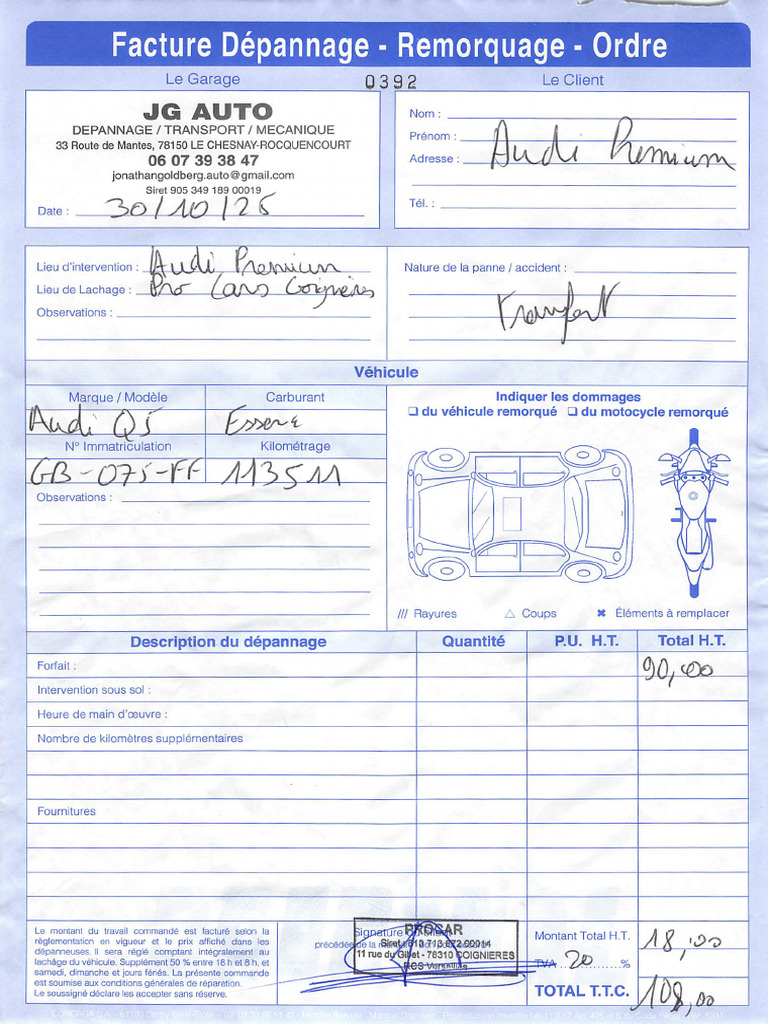 Facture Dépannage - Remorquage - Ordre
Le Garage
0392
Le Client
JG AUTO
DEPANNAGE / TRANSPORT / MECANIQUE
33 Route de Mantes, 78150 LE CHESNAY-ROCQUENCOURT
06 07 39 38 47
jonathangoldberg.auto@gmail.com
Siret 905 349 189 00019
Date : 30/10/25
Nom :
Prénom :
Adresse : Audi Premium
Tél. :
Lieu d'intervention : Audi Premium
Lieu de Lachage : Pro Cars Coignières
Observations :
Nature de la panne / accident :
Transfert
Véhicule
Marque / Modèle
Carburant
Audi Q5
Essence
N° Immatriculation
Kilométrage
GB-075-FF
113511
Observations :
Indiquer les dommages
du véhicule remorqué
du motocycle remorqué
/// Rayures
△ Coups
✖ Éléments à remplacer
Description du dépannage
Quantité
P.U. H.T.
Total H.T.
Forfait :
90,00
Intervention sous sol :
Heure de main d'œuvre :
Nombre de kilomètres supplémentaires
Fournitures
Le montant du travail commandé est facturé selon la
règlementation en vigueur et le prix affiché dans les
dépanneuses. Il sera réglé comptant intégralement au
lachâge du véhicule. Supplément 50 % entre 18 h et 8 h. et
samedi, dimanche et jours fériés. La présente commande
est soumise aux conditions générales de réparation.
Le soussigné déclare les accepter sans réserve.
Signature
précédée de la
PROCAR
11 rue du Gibet - 78310 COIGNIERES
RCS Versailles
Montant Total H.T.
18,00
TVA 20 %
TOTAL T.T.C.
108,00